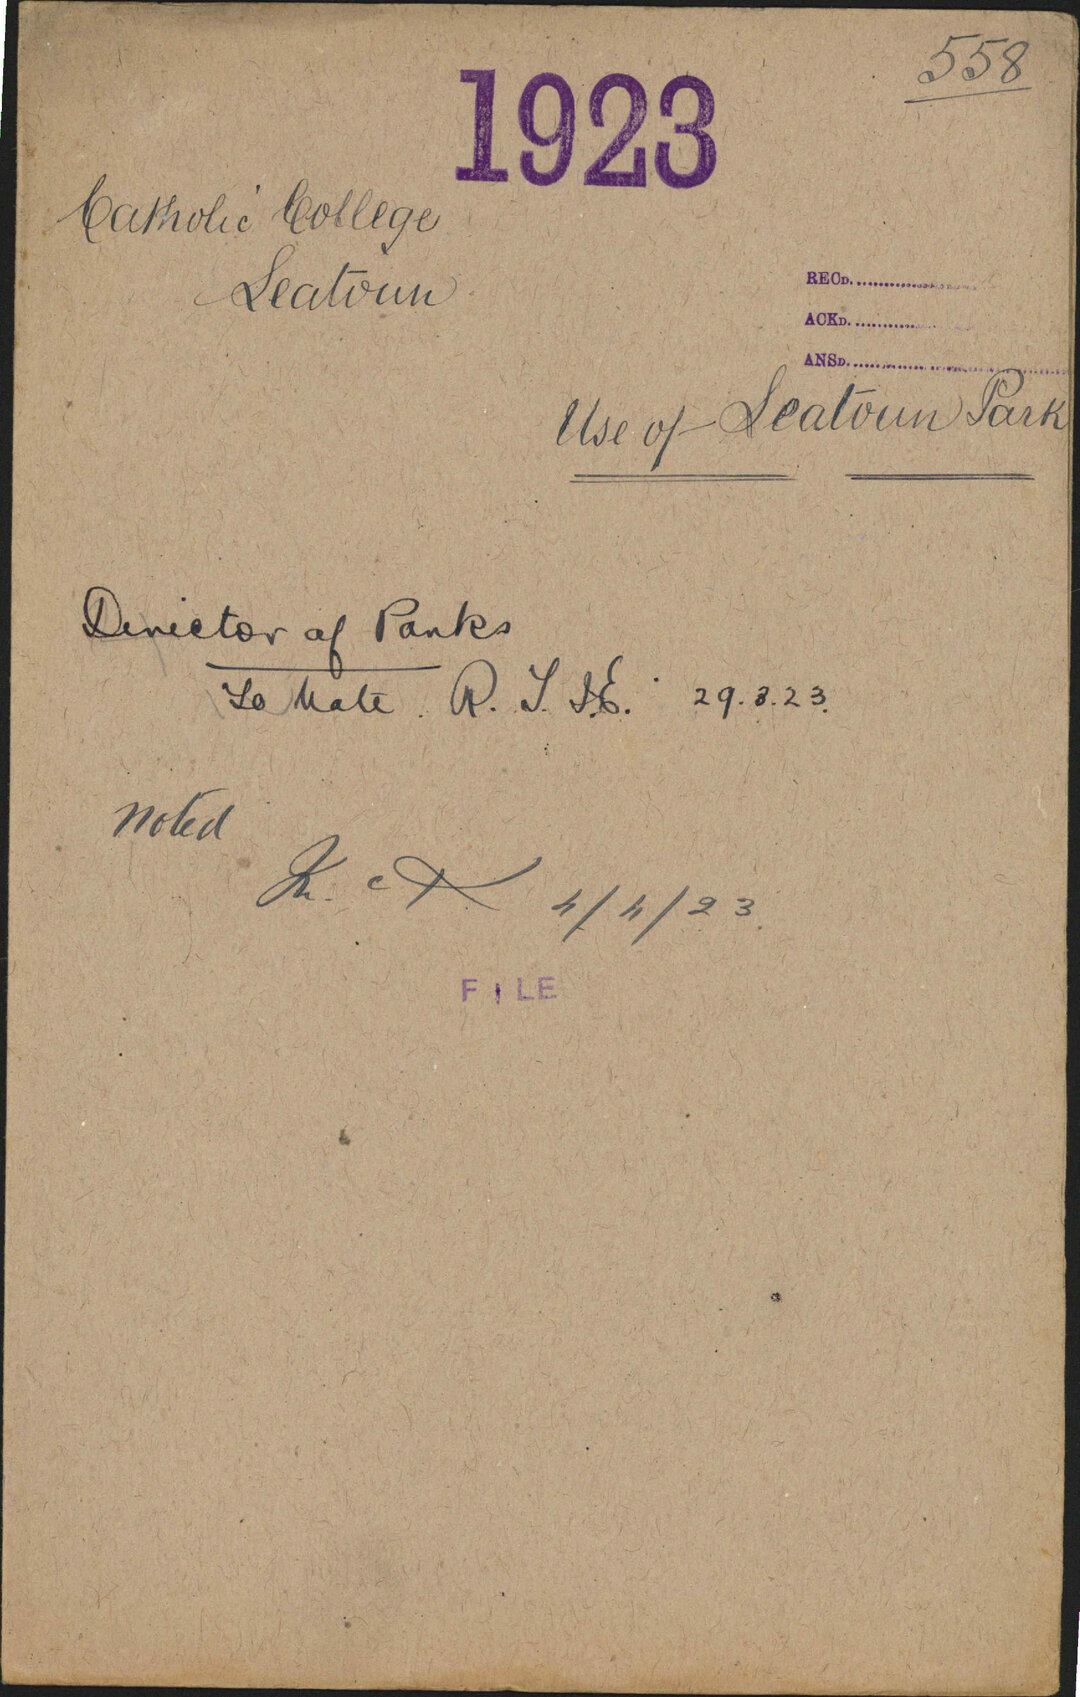 558
1923
Catholic College
Seatoun
RECD.
ACKD.
ANSD.
Use of Seatoun Park
Director of Parks
To Note 29.3.23.
Noted
4/4/23
FILE